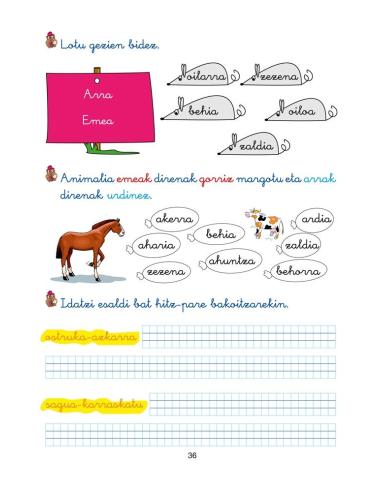 Lotu gezien bidez.
oilarra zezena
Arra
behia oiloa
Emea
zaldia
Animalia emeak direnak gorriz margotu eta arrak
direnak urdinez.
akerra ardia
behia
aharia zaldia
ahuntza
zezena behorra
Idatzi esaldi bat hitz-pare bakoitzarekin.
ostruka-azkarra
sagua-karraskatu
36